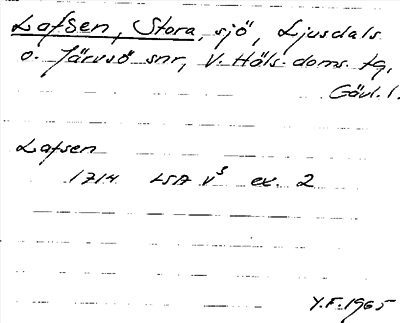 Lafsen, Stora, sjö, Ljusdals
o. Järvsö snr, V. Häls. doms. tg,
Gävl. l.
Lafsen
1714 LSA V^5 ex. 2
Y.F. 1965